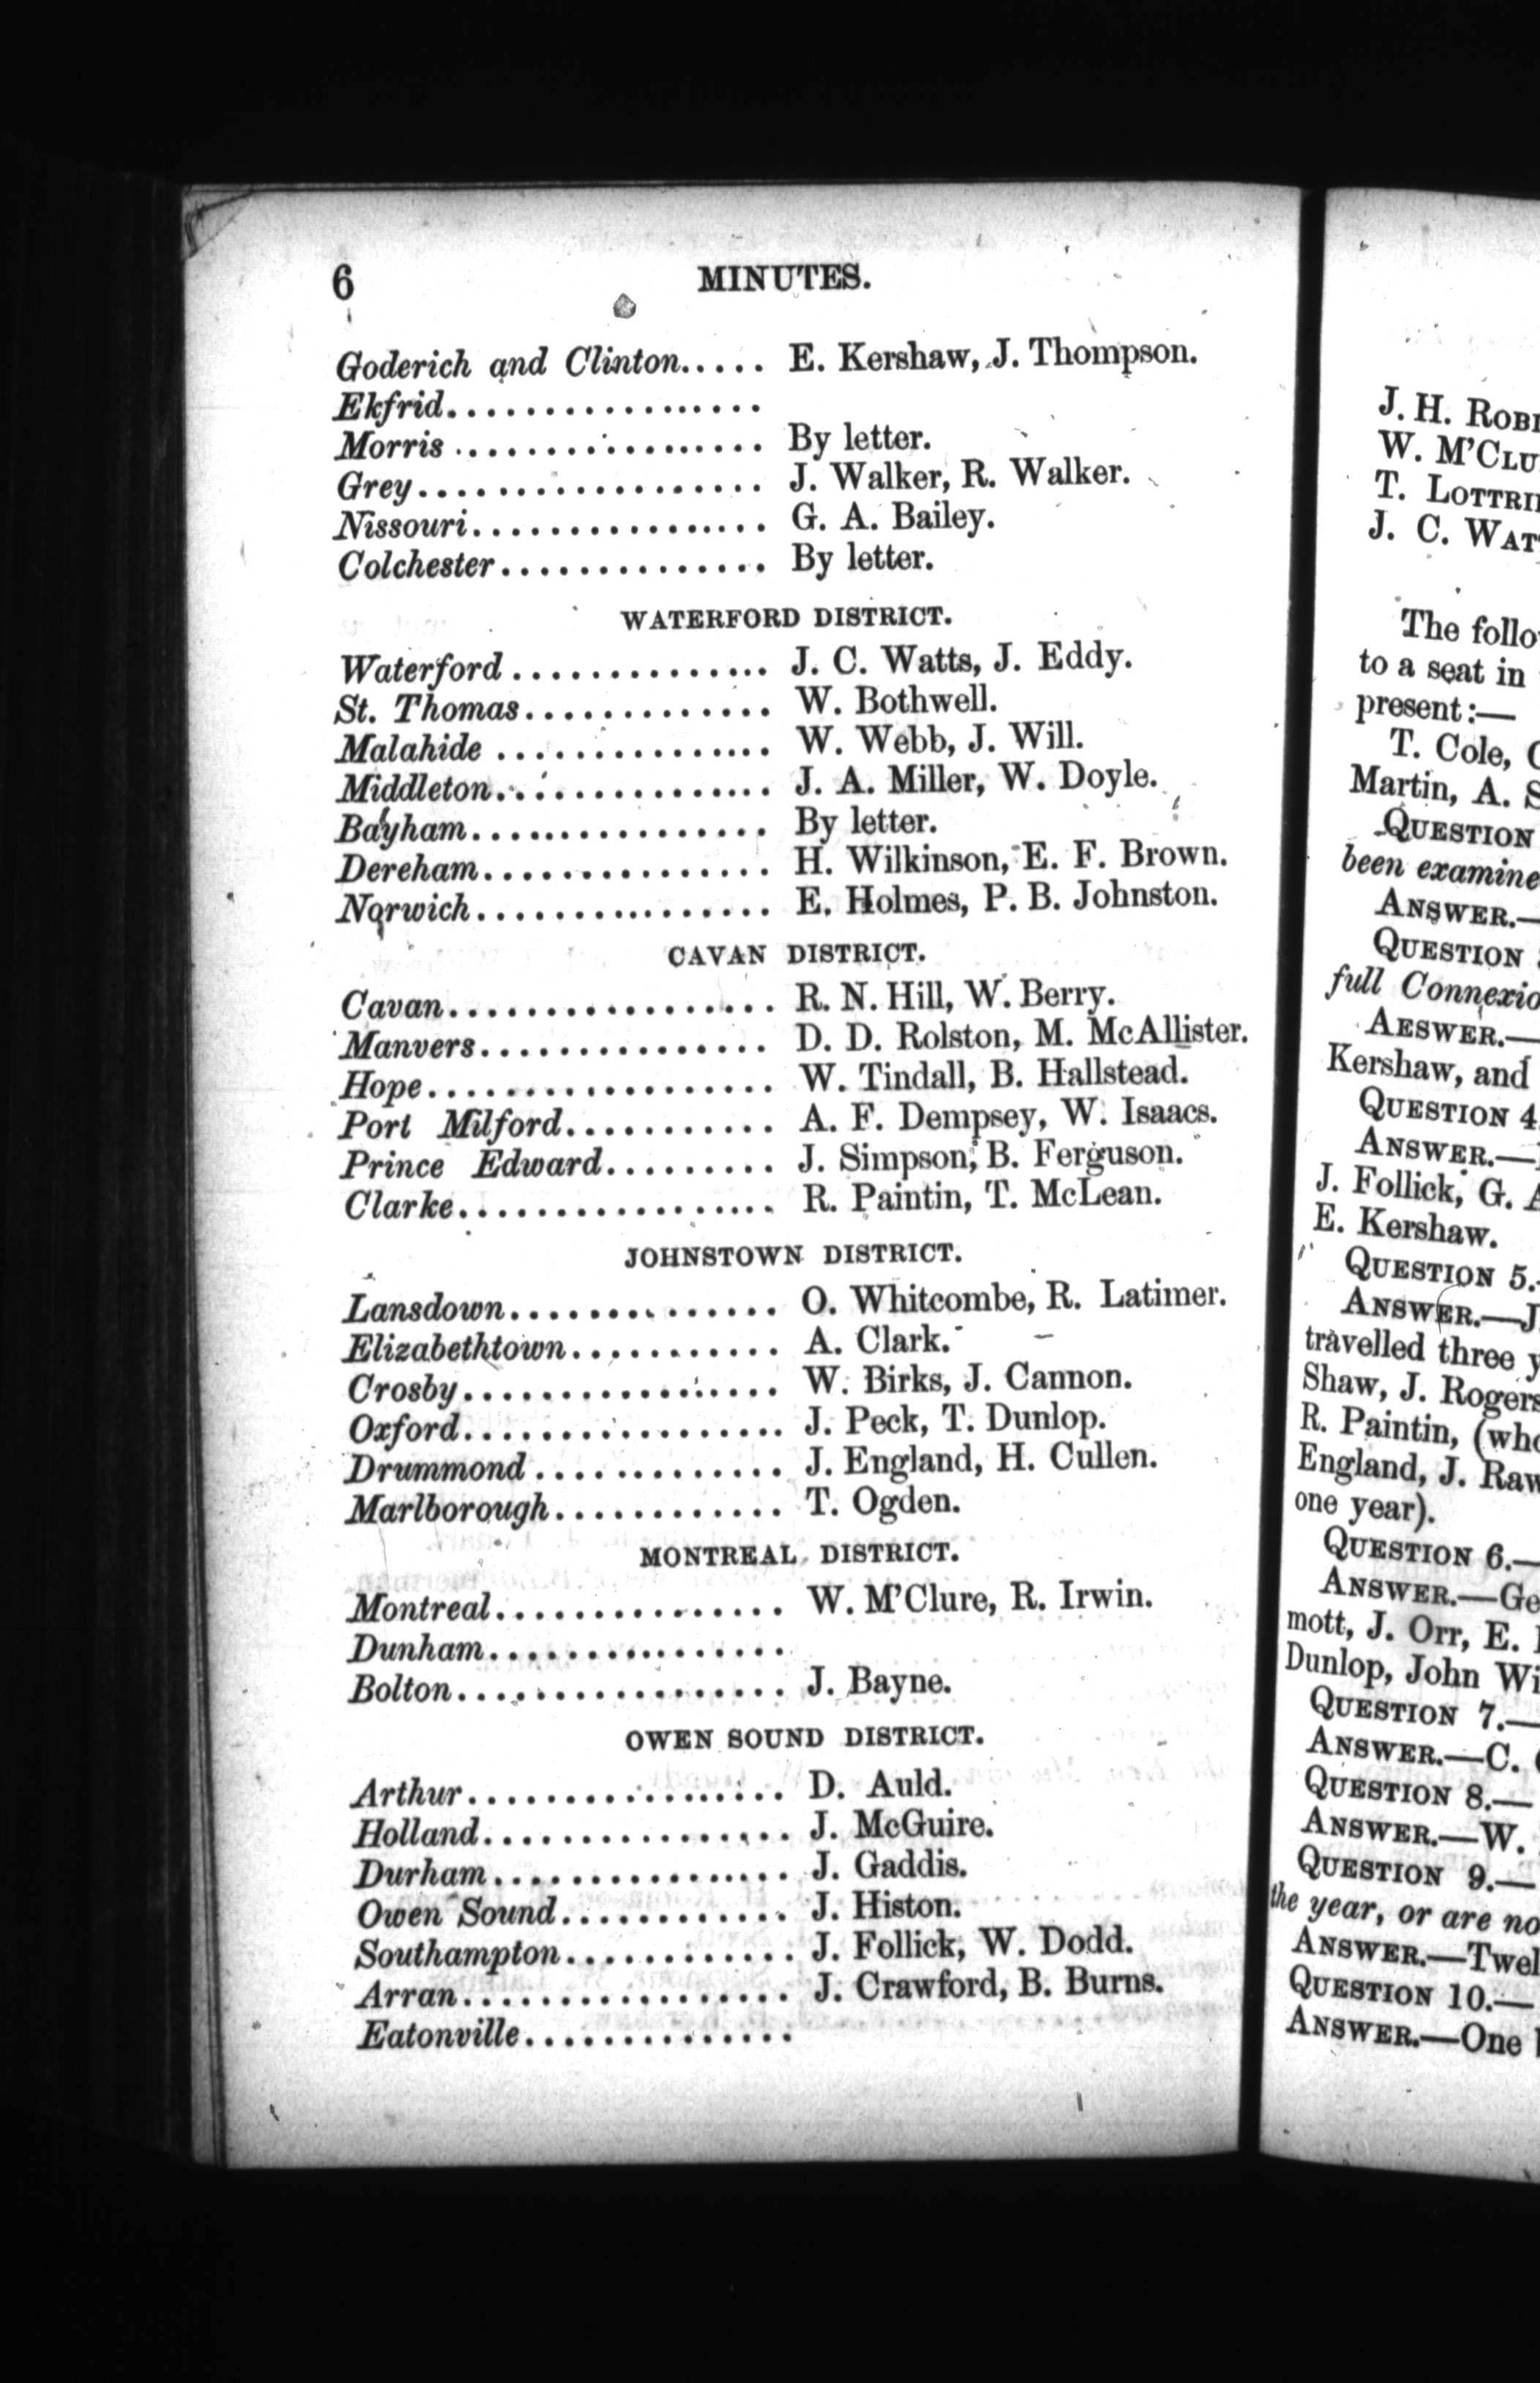 6 MINUTES.
Goderich and Clinton..... E. Kershaw, J. Thompson.
Ekfrid.................
Morris ................ By letter.
Grey.................. J. Walker, R. Walker.
Nissouri................ G. A. Bailey.
Colchester.............. By letter.
WATERFORD DISTRICT.
Waterford.............. J. C. Watts, J. Eddy.
St. Thomas............. W. Bothwell.
Malahide ............... W. Webb, J. Will.
Middleton............... J. A. Miller, W. Doyle.
Bayham................ By letter.
Dereham............... H. Wilkinson, E. F. Brown.
Norwich................ E. Holmes, P. B. Johnston.
CAVAN DISTRICT.
Cavan................. R. N. Hill, W. Berry.
Manvers............... D. D. Rolston, M. McAllister.
Hope.................. W. Tindall, B. Hallstead.
Port Milford........... A. F. Dempsey, W. Isaacs.
Prince Edward......... J. Simpson, B. Ferguson.
Clarke................. R. Paintin, T. McLean.
JOHNSTOWN DISTRICT.
Lansdown.............. O. Whitcombe, R. Latimer.
Elizabethtown........... A. Clark.
Crosby................. W. Birks, J. Cannon.
Oxford................. J. Peck, T. Dunlop.
Drummond ............. J. England, H. Cullen.
Marlborough............ T. Ogden.
MONTREAL DISTRICT.
Montreal............... W. M'Clure, R. Irwin.
Dunham................
Bolton................. J. Bayne.
OWEN SOUND DISTRICT.
Arthur................. D. Auld.
Holland................ J. McGuire.
Durham................ J. Gaddis.
Owen Sound............ J. Histon.
Southampton............ J. Follick, W. Dodd.
Arran................. J. Crawford, B. Burns.
Eatonville..............
J. H.
W.
T.
J. C.
The
to a seat in
present:—
T. Cole,
Martin, A.
QUESTION
been
ANSWER.—
QUESTION
full
AESWER.—
Kershaw, and
QUESTION 4
ANSWER.—
J. Follick, G.
E. Kershaw.
QUESTION 5.
ANSWER.—J
travelled three
Shaw, J. Rogers
R. Paintin,
England, J.
one year).
QUESTION 6.—
ANSWER.—
mott, J. Orr, E.
Dunlop, John
QUESTION 7.—
ANSWER.—C.
QUESTION 8.—
ANSWER.—W.
QUESTION 9.—
the year, or are
ANSWER.—
QUESTION 10.—
ANSWER.—One